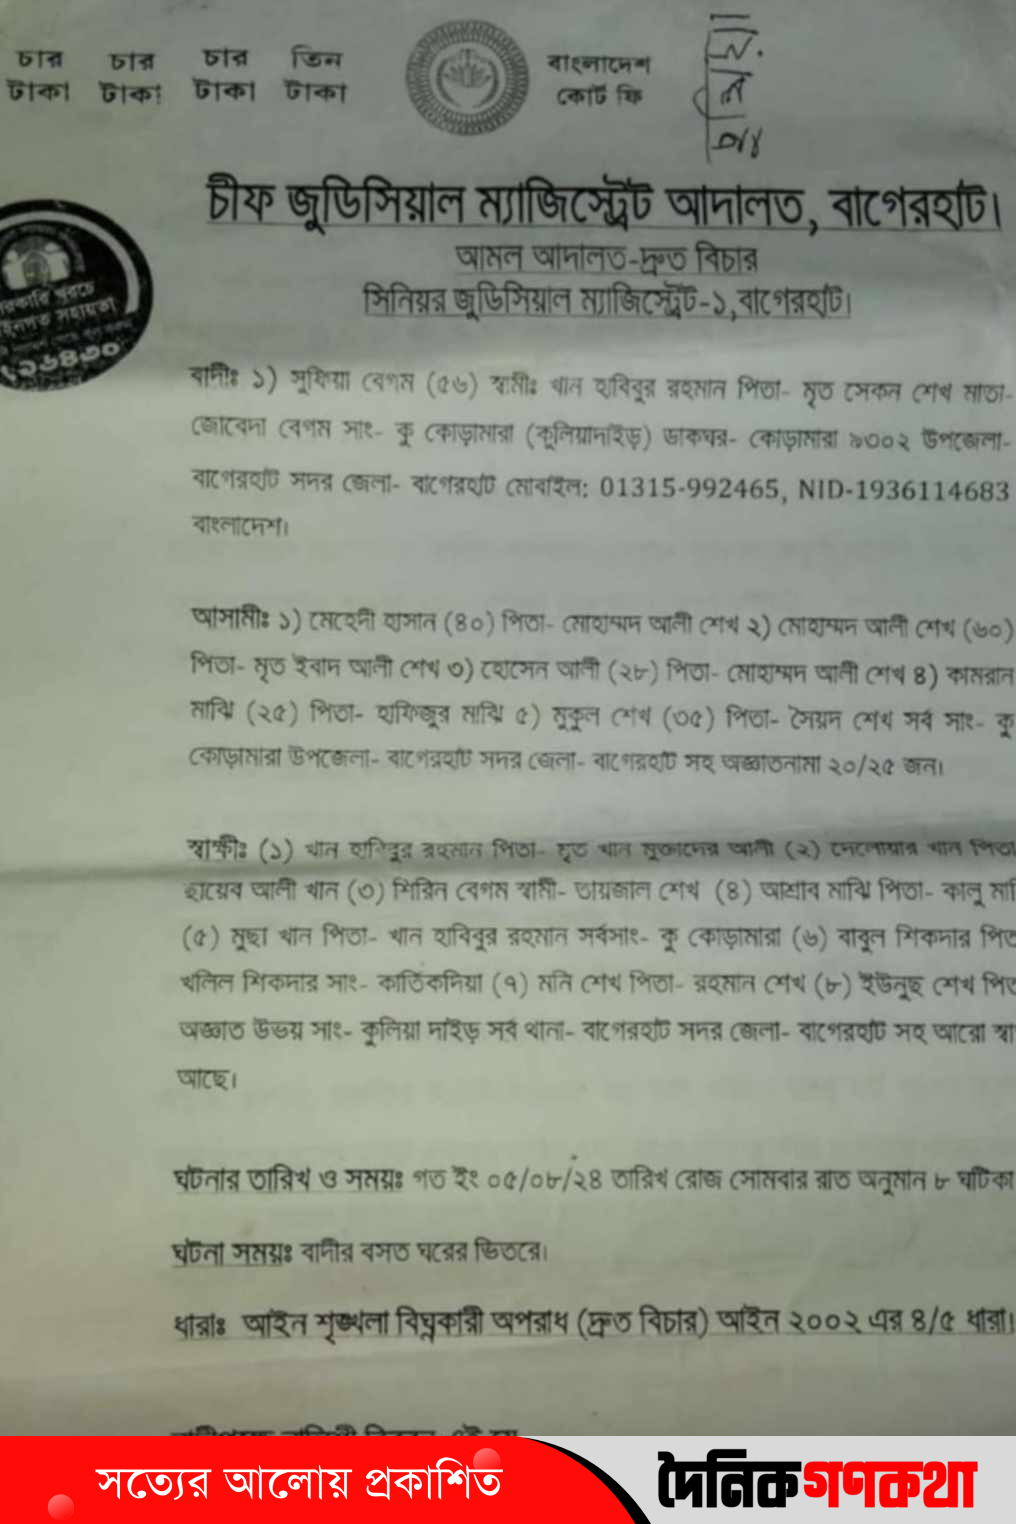 চার চার চার তিন
টাকা টাকা টাকা টাকা
বাংলাদেশ
কোর্ট ফি
চীফ জুডিসিয়াল ম্যাজিস্ট্রেট আদালত, বাগেরহাট।
আমল আদালত-দ্রুত বিচার
সিনিয়র জুডিসিয়াল ম্যাজিস্ট্রেট-১,বাগেরহাট।
১৬৪৩০
বাদীঃ ১) সুফিয়া বেগম (৫৬) স্বামীঃ খান হাবিবুর রহমান পিতা- মৃত সেকন শেখ মাতা-
জোবেদা বেগম সাং- কু কোড়ামারা (কুলিয়াদাইড়) ডাকঘর- কোড়ামারা ৯৩০২ উপজেলা-
বাগেরহাট সদর জেলা- বাগেরহাট মোবাইল: 01315-992465, NID-1936114683
বাংলাদেশ।
আসামীঃ ১) মেহেদী হাসান (৪০) পিতা- মোহাম্মদ আলী শেখ ২) মোহাম্মদ আলী শেখ (৬০)
পিতা- মৃত ইবাদ আলী শেখ ৩) হোসেন আলী (২৮) পিতা- মোহাম্মদ আলী শেখ ৪) কামরান
মাঝি (২৫) পিতা- হাফিজুর মাঝি ৫) মুকুল শেখ (৩৫) পিতা- সৈয়দ শেখ সর্ব সাং- কু
কোড়ামারা উপজেলা- বাগেরহাট সদর জেলা- বাগেরহাট সহ অজ্ঞাতনামা ২০/২৫ জন।
স্বাক্ষীঃ (১) খান হাবিবুর রহমান পিতা- মৃত খান মুক্তাদের আলী (২) দেলোয়ার খান পিতা
হায়েব আলী খান (৩) শিরিন বেগম স্বামী- তায়জাল শেখ (৪) আশ্রাব মাঝি পিতা- কালু
(৫) মুছা খান পিতা- খান হাবিবুর রহমান সর্বসাং- কু কোড়ামারা (৬) বাবুল শিকদার
খলিল শিকদার সাং- কার্তিকদিয়া (৭) মনি শেখ পিতা- রহমান শেখ (৮) ইউনুছ শেখ
অজ্ঞাত উভয় সাং- কুলিয়া দাইড় সর্ব থানা- বাগেরহাট সদর জেলা- বাগেরহাট সহ আরো
আছে।
ঘটনার তারিখ ও সময়ঃ গত ইং ০৫/০৮/২৪ তারিখ রোজ সোমবার রাত অনুমান ৮ ঘটিকা
ঘটনা সময়ঃ বাদীর বসত ঘরের ভিতরে।
ধারাঃ আইন শৃঙ্খলা বিঘ্নকারী অপরাধ (দ্রুত বিচার) আইন ২০০২ এর ৪/৫ ধারা।
সত্যের আলোয় প্রকাশিত
দৈনিক গণকথা